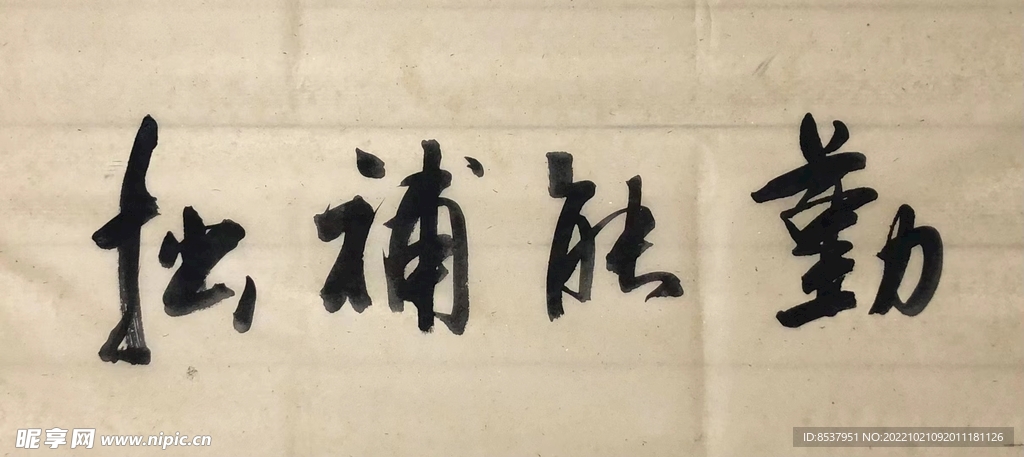 勤能補拙
昵享网 www.nipic.cn
ID:8537951 NO:20221021092011181126